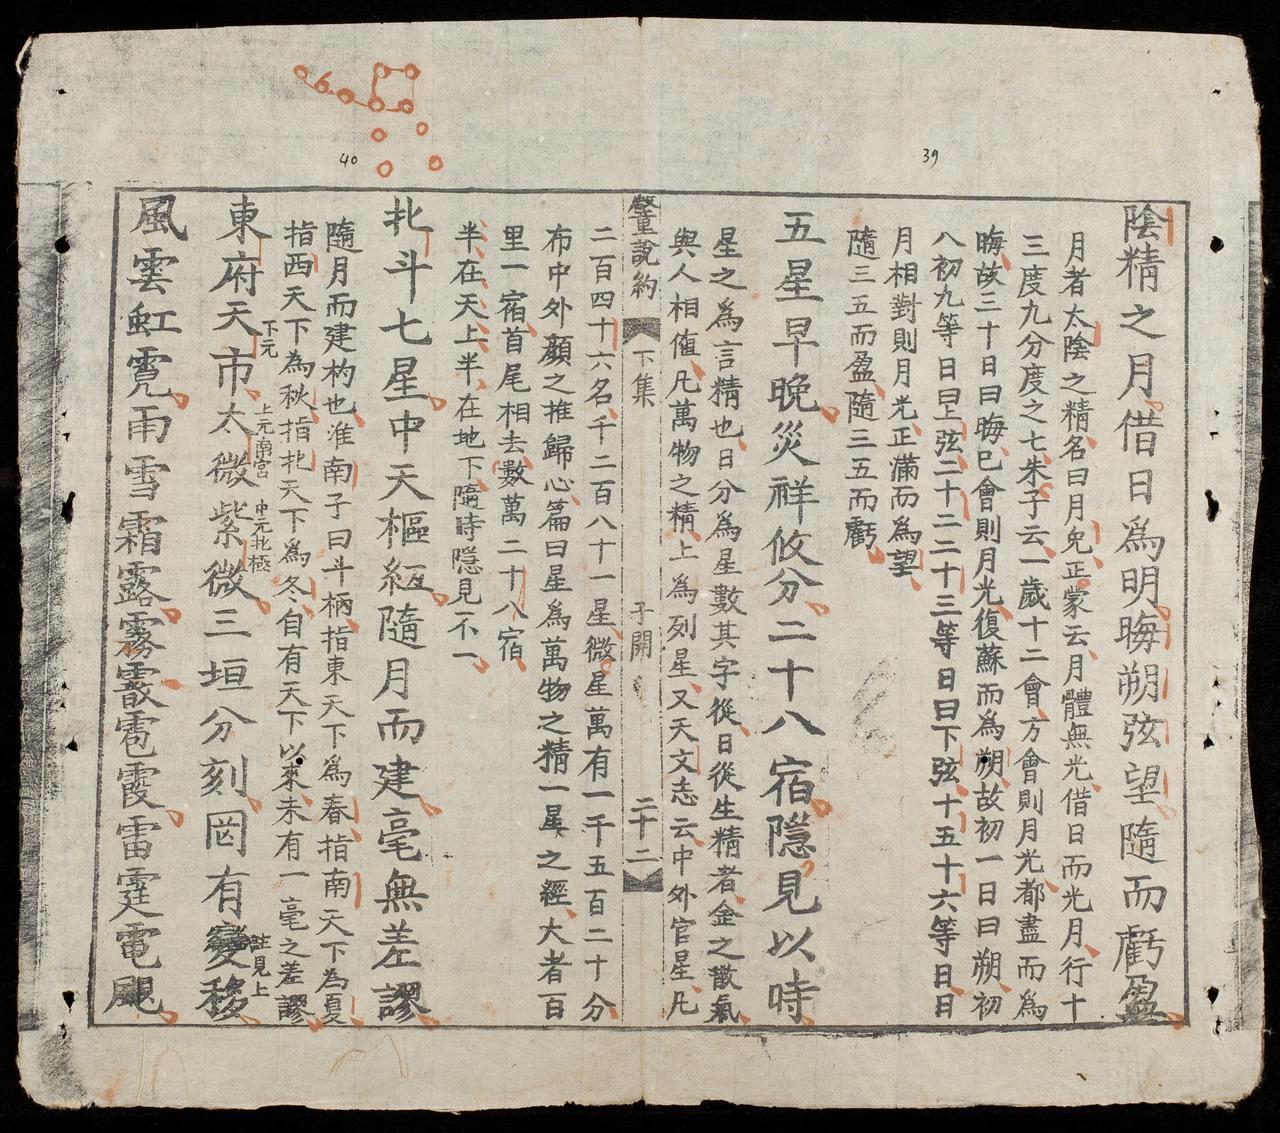 39
陰精之月借日爲明晦朔弦望隨而虧盈
月者太陰之精名曰月免正蒙云月體無光借日而光月行十
三度九分度之七朱子云一歲十二會方會則月光都盡而爲
晦故三十日曰晦已會則月光復蘇而爲朔故初一日曰朔初
八初九等日曰上弦二十二二十三等日曰下弦十五十六等日日
月相對則月光正滿而爲望
隨三五而盈隨三五而虧
五星早晚災祥攸分二十八宿隱見以時
星之爲言精也日分爲星數其字從日從生精者金之散氣
與人相値凡萬物之精上爲列星又天文志云中外官星凡
蒙童說約 下集 子開 二十二
二百四十六名千二百八十一星微星萬有一千五百二十分
布中外顧之推歸心篇曰星爲萬物之精一星之經大者百
里一宿首尾相去數萬二十八宿
半在天上半在地下隨時隱見不一
40
北斗七星中天樞紐隨月而建毫無差謬
隨月而建杓也淮南子曰斗柄指東天下爲春指南天下爲夏
指西天下爲秋指北天下爲冬自有天下以來未有一毫之差謬
東府天市下元太微上元南宮紫微中元北極三垣分刻罔有變移註見上
風雲虹霓雨雪霜露霧霰雹霞雷霆電颶